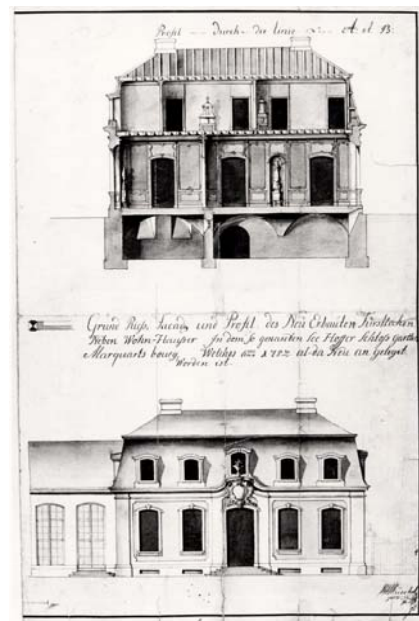 Profil durch die Linie A: et B:
Grund Riss, Facad, und Profil des Neu Erbauten Fürstlichen
Neben Wohn-Haußer In dem so genanten See Hoffer Schloss Garthe
Marquarts bourg, Welches 1782 al da Neu an Geleget
Worden ist